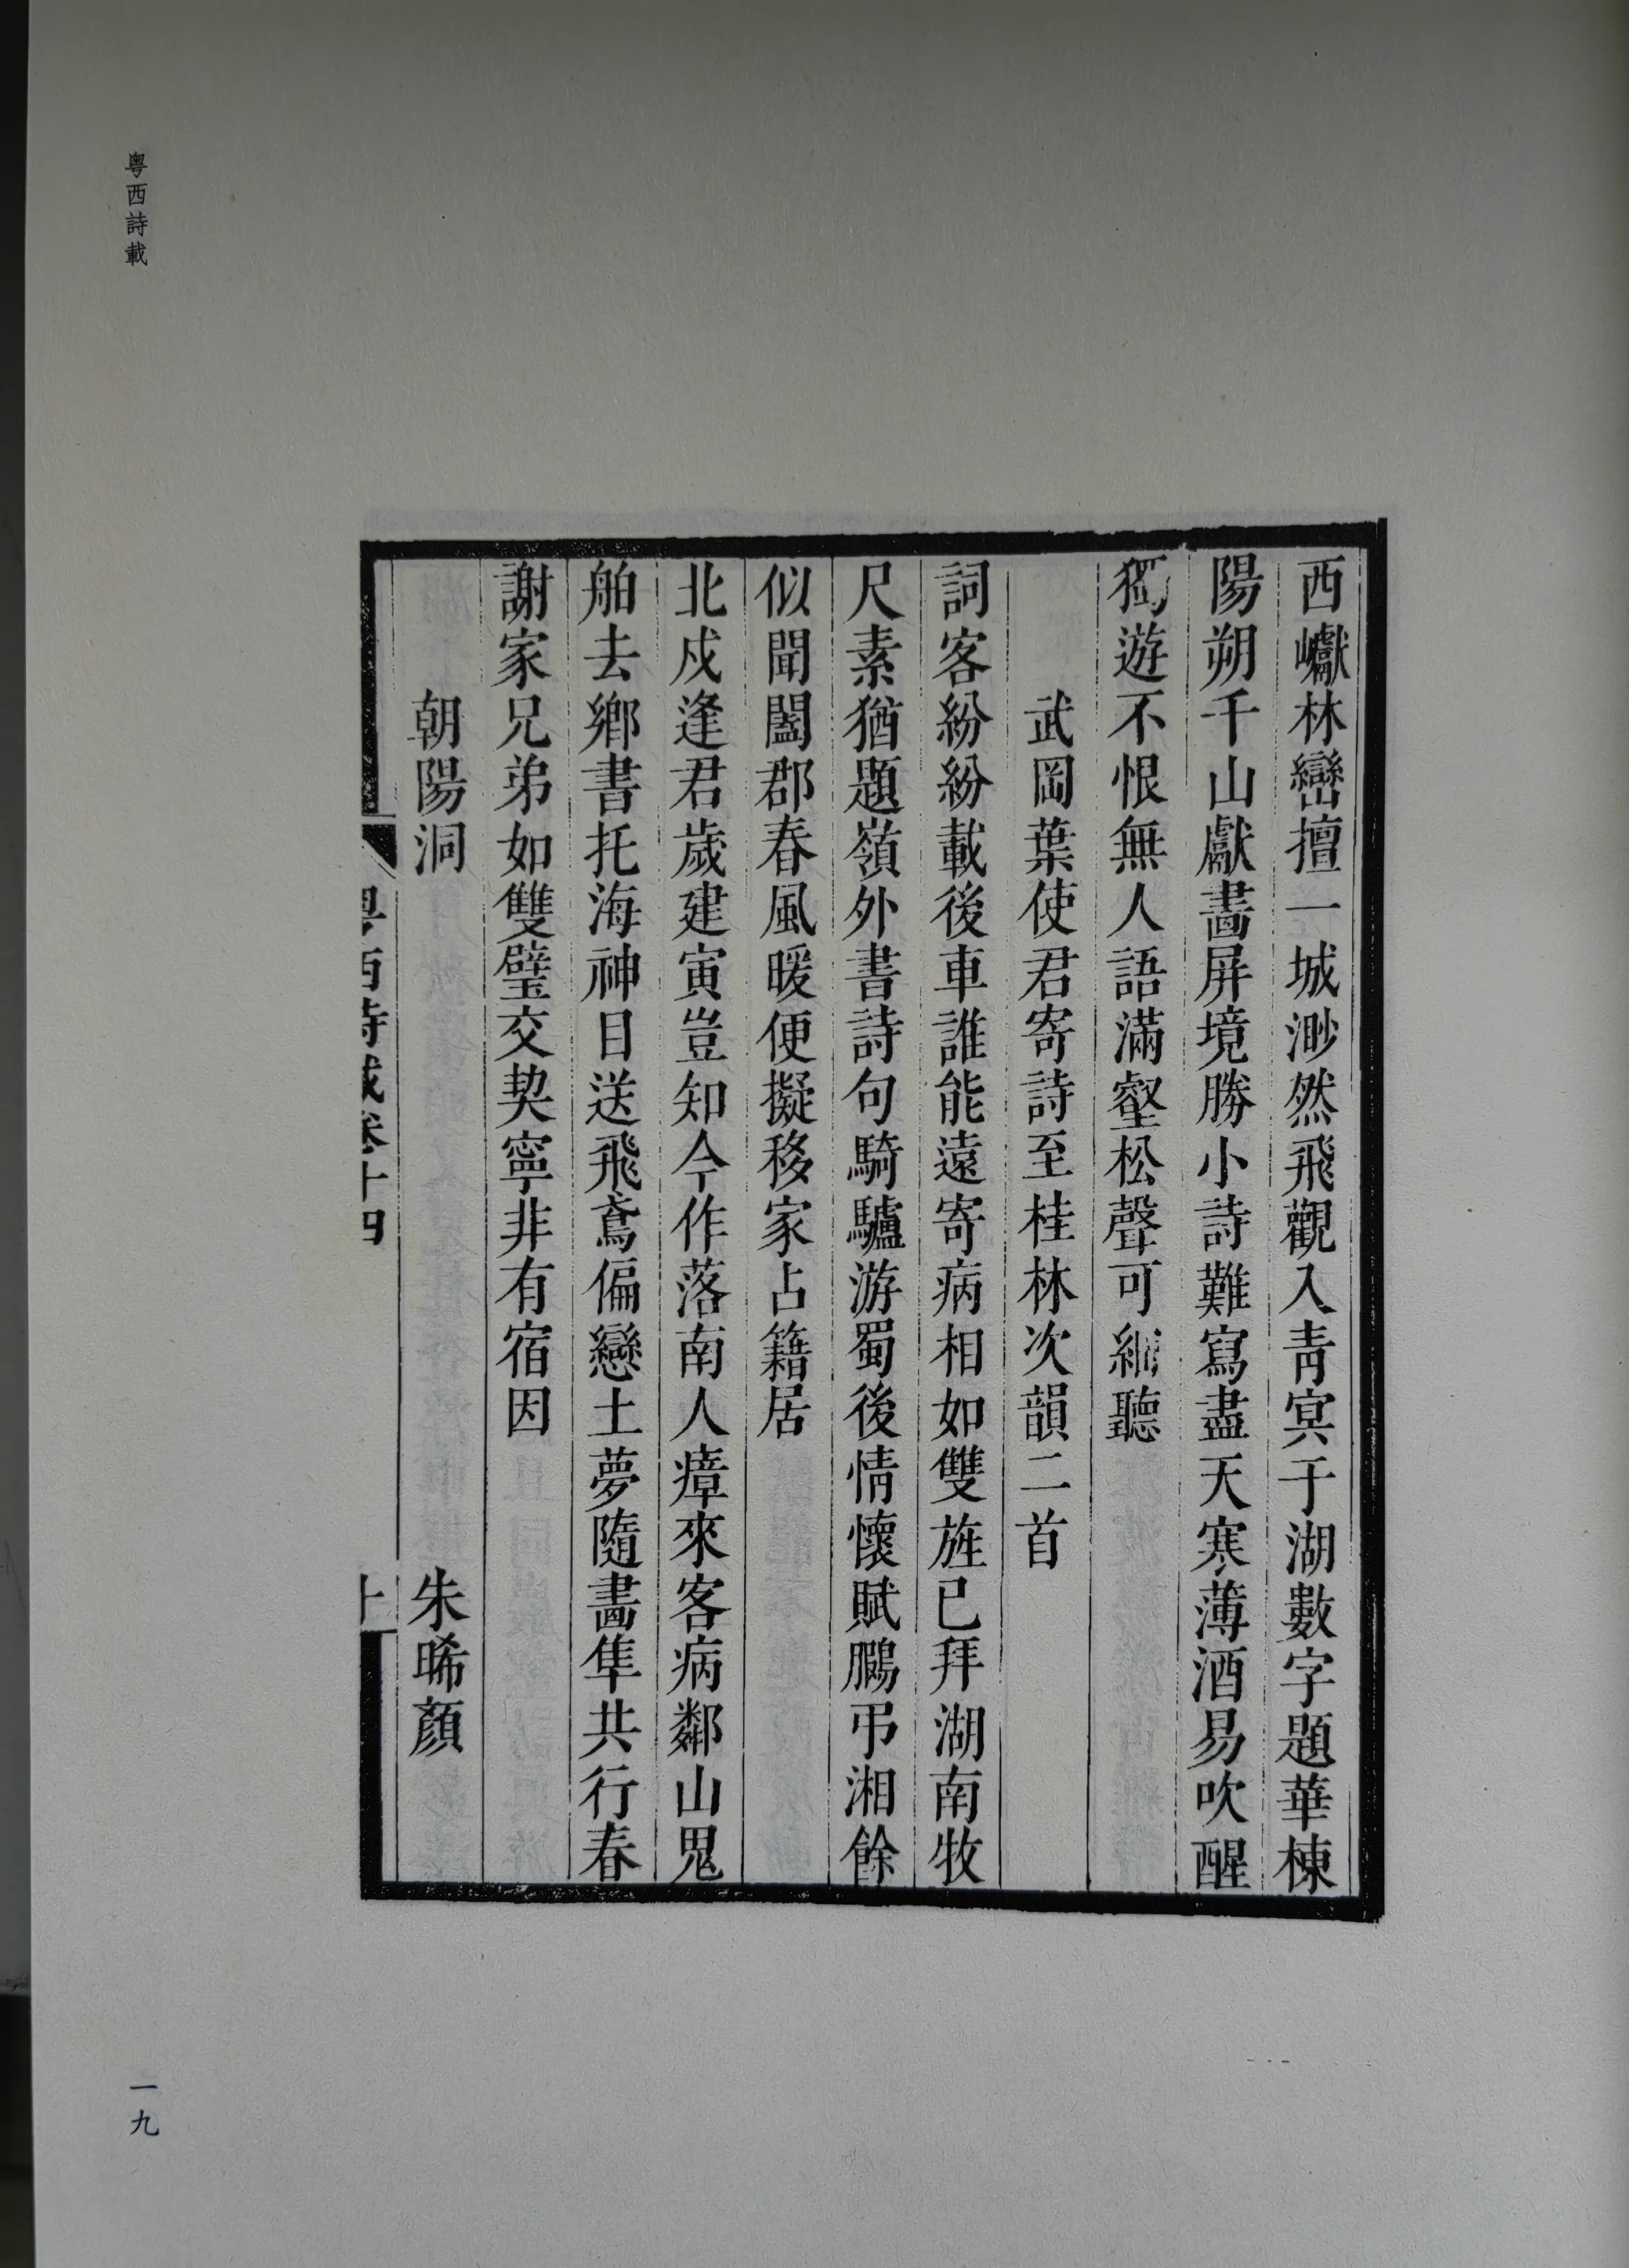 西巘林巒擅一城渺然飛觀入青冥于湖數字題華棟
陽朔千山獻畵屏境勝小詩難寫盡天寒薄酒易吹醒
獨遊不恨無人語滿壑松聲可細聽
武岡葉使君寄詩至桂林次韻二首
詞客紛紛載後車誰能遠寄病相如雙旌已拜湖南牧
尺素猶題嶺外書詩句騎驢游蜀後情懷賦鵩弔湘餘
似聞闔郡春風暖便擬移家占籍居
北戍逢君歲建寅豈知今作落南人瘴來客病鄰山鬼
舶去鄉書托海神目送飛鳶偏戀土夢隨畵隼共行春
謝家兄弟如雙璧交契寧非有宿因
朝陽洞 朱晞顏
粵西詩載卷十四 十
粤西詩載
一九